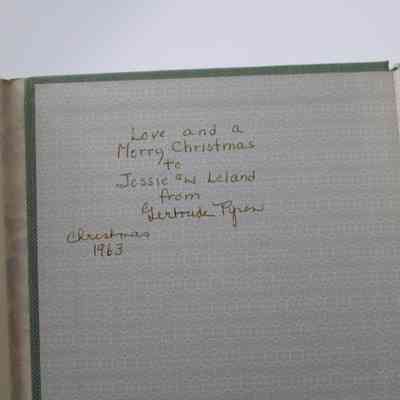 Love and a
Merry Christmas
to
Jessie and Leland
from
Gertrude
Christmas
1963